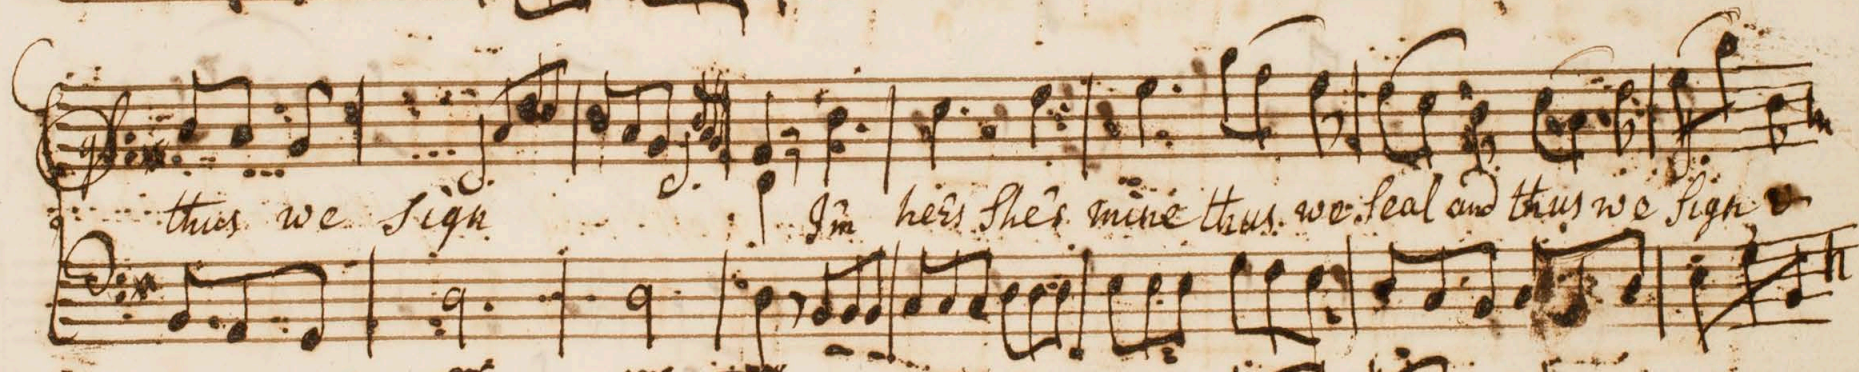 thus we sign I'm her's She's mine thus we seal and thus we sign